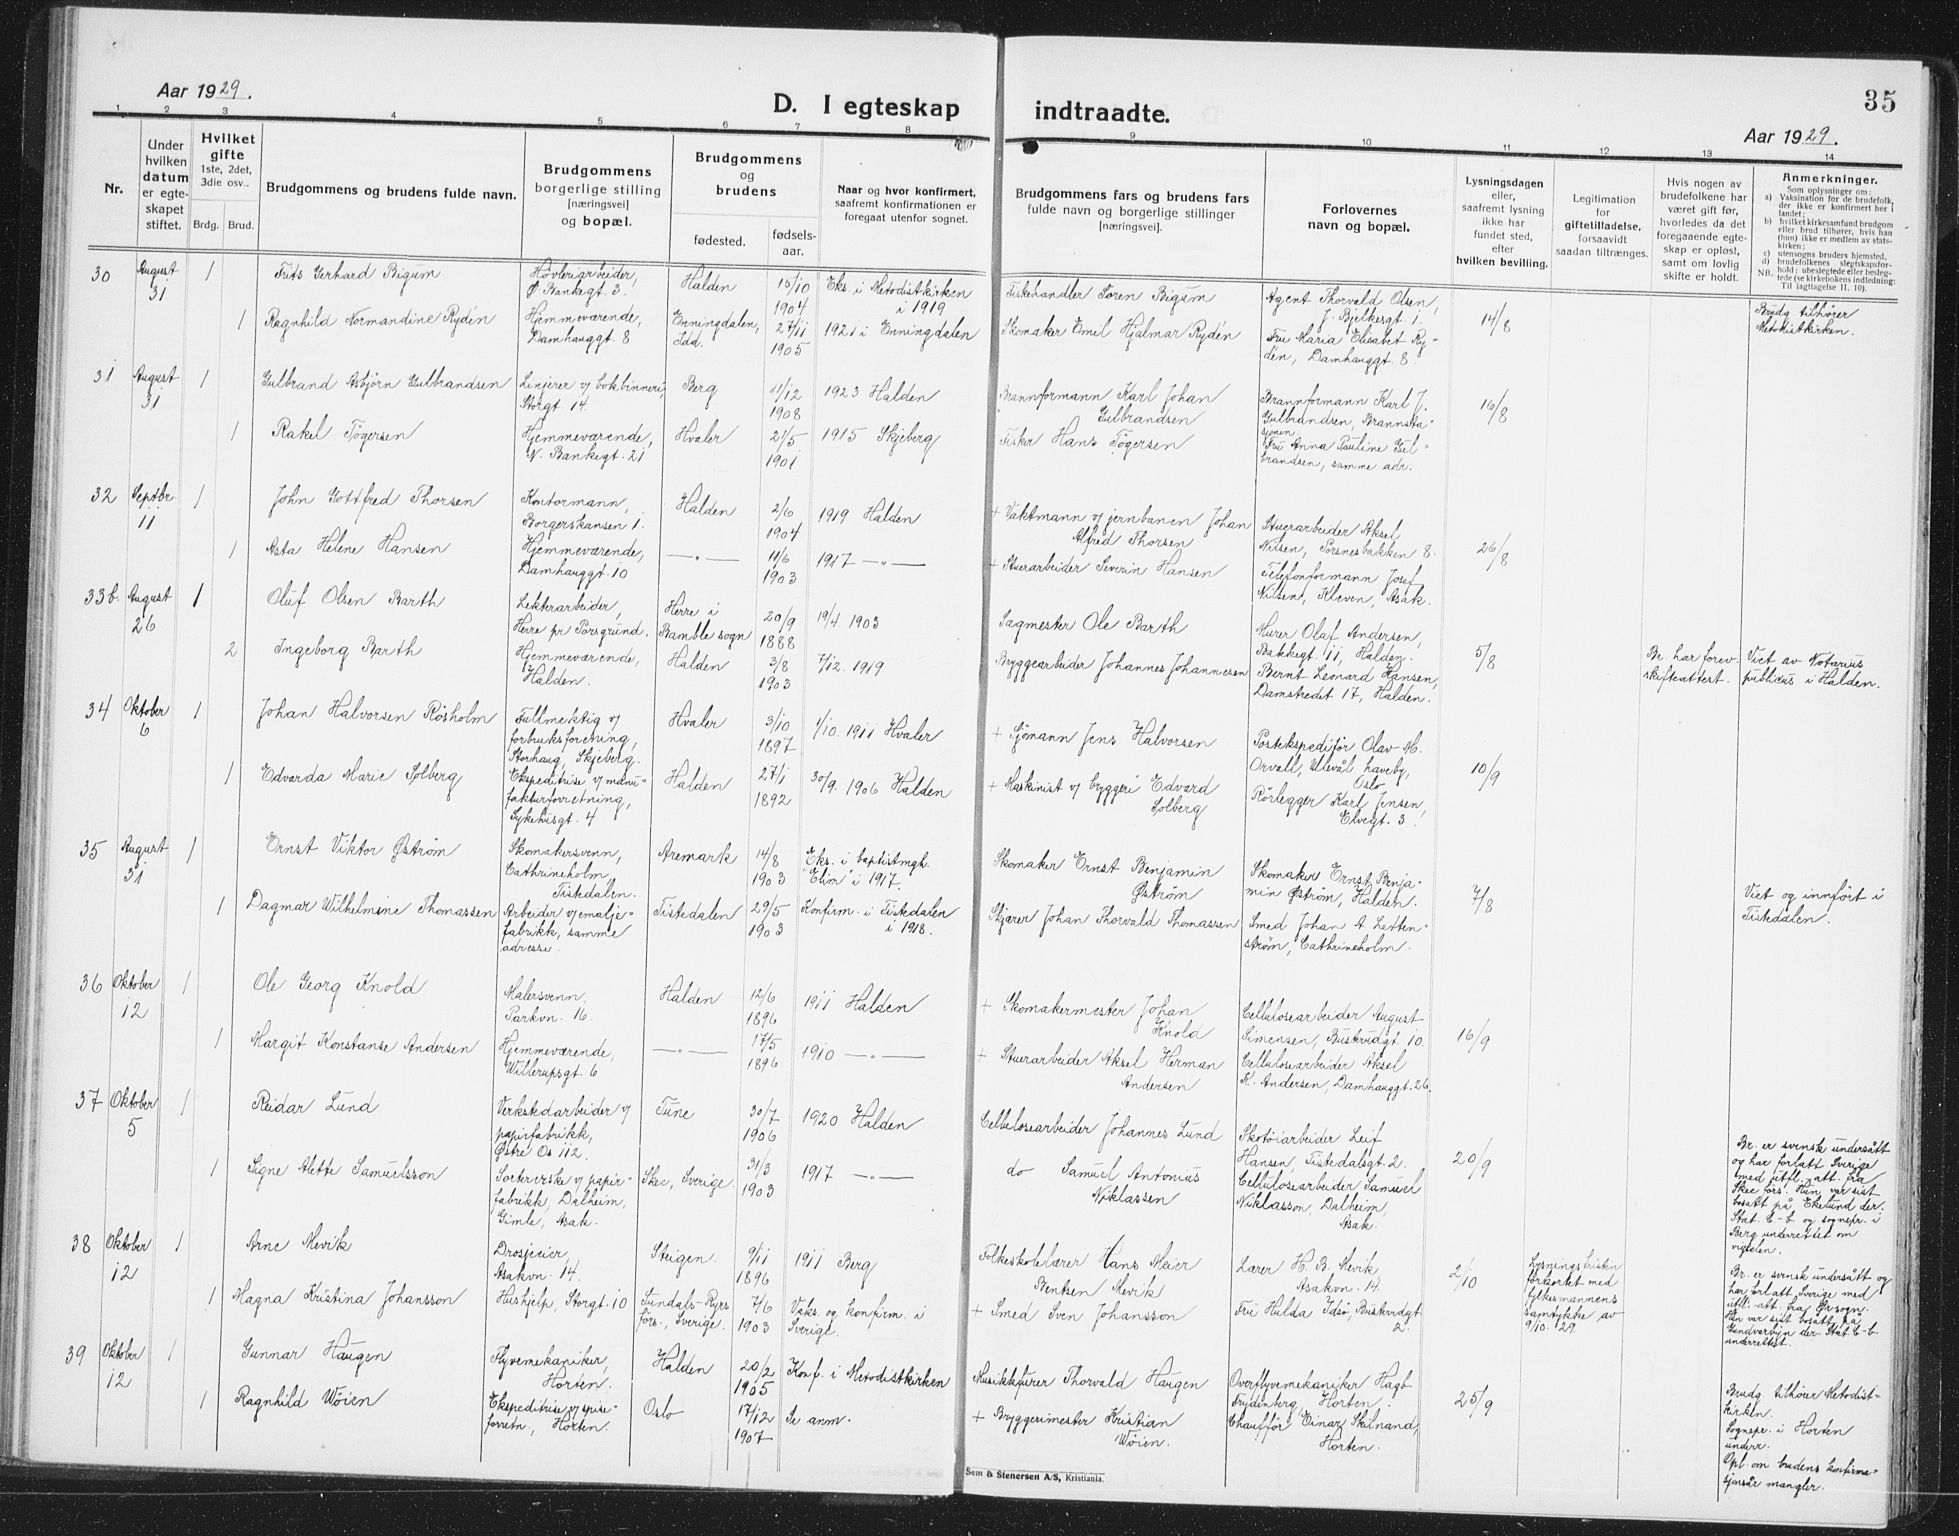 Aar 1929.
D. I egteskap indtraadte.
35
Aar 1929.
1 2 3 4 5 6 7 8 9 10 11 12 13 14
Nr.
Under
hvilken
datum
er egte-
skapet
stiftet.
Hvilket
gifte
1ste, 2det,
3die osv..
Brdg. Brud.
Brudgommens og brudens fulde navn.
Brudgommens
borgerlige stilling
[næringsvei]
og bopæl.
Brudgommens
og
brudens
fødested.
fødsels-
aar.
Naar og hvor konfirmert,
saafremt konfirmationen er
foregaat utenfor sognet.
Brudgommens fars og brudens fars
fulde navn og borgerlige stillinger
[næringsvei].
Forlovernes
navn og bopæl.
Lysningsdagen
eller,
saafremt lysning
ikke har
fundet sted,
efter
hvilken bevilling.
Legitimation
for
giftetilladelse,
forsaavidt
saadan tiltrænges.
Hvis nogen av
brudefolkene har
været gift før,
hvorledes da det
foregaaende egte-
skap er opløst,
samt om lovlig
skifte er holdt.
Anmerkninger.
Som oplysninger om:
a) Vaksination for de brudefolk,
der ikke er konfirmert her i
landet;
b) hvilket kirkesamfund brudgom
eller brud tilhører, hvis han
(hun) ikke er medlem av stats-
kirken;
c) utensogns bruders hjemsted,
d) brudefolkenes slegtskapsfor-
hold: ubeslegtede eller besleg-
tede (se kirkebokens indledning:
NB. Til iagttagelse II. 10).
30 August 31 1
Frits Gerhard Bigum
Høvleriarbeider,
J. Bankegt. 3.
Halden
15/10
1904
Eks. i Metodistkirken
i 1919
Fiskehandler Søren Bigum
Agent Thorvald Olsen,
J. Bjelkesgt 1.
14/8
Brudg. tilhører
Metodistkirken.
1 Ragnhild Normandine Rydén
Hjemmeværende,
Damhauggt. 8
Enningdalen,
Idd.
27/11
1905
1921 i Enningdalen
Skomaker Emil Hjalmar Rydén
Fru Maria Elisabet Ry-
dén, Damhauggt. 8.
31 August 31 1
Gulbrand Asbjörn Gulbrandsen
Linjerer v/ bokbinneri,
Storgt 14.
Berg
11/12
1908
1923 Halden
Brannformann Karl Johan
Gulbrandsen
Brannformann Karl J.
Gulbrandsen, Brannsta-
sjonen.
16/8
1 Rakel Tøgersen
Hjemmeværende,
N. Bankegt. 21
Hvaler
21/5
1901
1915 Skjeberg
Fisker Hans Tøgersen
Fru Anna Pauline Gul-
brandsen, samme adr.
32 Septbr. 11 1
John Gottfred Thorsen
Kontormann,
Borgerskansen 1.
Halden
2/6
1904
1919 Halden
+ Vaktmann v/ jernbanen Johan
Alfred Thorsen
Stuerarbeider Aksel
Nilsen, Torsnesbakken 8.
26/8
1 Asta Helene Hansen
Hjemmeværende,
Damhauggt. 10
—"—
11/6
1903
1917 —"—
+ Stuerarbeider Severin Hansen
Telefonformann Josef
Nilsen, Kleven, Asak.
33b. August 26 1
Oluf Olsen Barth
Lekterarbeider,
Herre pr Porsgrund.
Herre i
Bamble sogn
20/9
1888
19/4 1903
Sagmester Ole Barth
Murer Olaf Andersen,
Bakkegt. 11, Halden.
5/8
Br. har forev.
skifteattest.
Viet av Notarius
publicus i Halden.
2 Ingeborg Barth
Hjemmeværende,
Halden.
Halden
3/8
1903
7/12. 1919
Bryggearbeider Johannes Johannesen
Bernt Leonard Hansen,
Damstredet 17, Halden.
34 Oktober 6 1
Johan Halvorsen Røsholm
Fullmektig v/
forbruksforening,
Storhaug, Skjeberg.
Hvaler
3/10
1897
1/10. 1911 Hvaler
+ Sjømann Jens Halvorsen
Postekspeditør Olav M.
Orvall, Ullevål haveby,
Oslo
10/9
1 Edvarda Marie Solberg
Ekspeditrise v/ manu-
fakturforretning,
Sykehusgt. 4
Halden
27/1
1892
30/9. 1906 Halden
+ Maskinist v/ bryggeri Edvard
Solberg
Rørlegger Karl Jensen,
Elvegt. 3.
35 August 31 1
Ernst Viktor Østrøm
Skomakersvenn,
Cathrineholm,
Tistedalen.
Aremark
14/8
1903
Eks. i baptistmgh.
"Elim" i 1917.
Skomaker Ernst Benjamin
Østrøm
Skomaker Ernst Benja-
min Østrøm, Halden.
7/8
Viet og innført i
Tistedalen.
1 Dagmar Wilhelmine Thomassen
Arbeider v/ emalje-
fabrikk, samme
adresse.
Tistedalen
29/5
1903
Konfirm. i Tistedalen
i 1918.
Skjærer Johan Thorvald Thomassen
Smed Johan A. Letten-
strøm, Cathrineholm.
36 Oktober 12 1
Ole Georg Knold
Malersvenn,
Parkvn. 16.
Halden
12/6
1896
1911 Halden
+ Skomakermester Johan
Knold
Cellulosearbeider August
Simensen, Buskvidgt. 10.
16/9
1 Margit Konstanse Andersen
Hjemmeværende,
Willerupsgt. 6
—"—
17/5
1896
1910 —"—
+ Stuerarbeider Aksel Herman
Andersen
Cellulosearbeider Aksel
K. Andersen, Damhauggt. 26.
37 Oktober 5 1
Reidar Lund
Verkstedarbeider v/
papirfabrikk,
Østre Os 112.
Tune
30/7
1906
1920 Halden
Cellulosearbeider Johannes Lund
Skotøiarbeider Leif
Hansen, Tistedalsgt. 2.
20/9
Br. er svensk undersått
og har forlatt Sverige
med utfl. att. fra
Skee förs. Hun var sist
bosatt på Ekelund der.
Stat. C-b. og sognepr. i
Berg underrettet om
vigselen.
1 Signe Alette Samuelsson
Sorterske v/ papir-
fabrikk, Dalheim,
Gimle, Asak.
Skee, Sverige.
31/3
1903
1917 —"—
do Samuel Antonius
Niklassen
Cellulosearbeider Samuel
Niklasson, Dalheim,
Asak.
38 Oktober 12 1
Arne Mevik
Drosjeeier,
Asakvn. 14.
Steigen.
9/11
1896
1911 Berg
Folkeskolelærer Hans Meier
Bentsen Mevik
Lærer H. B. Mevik,
Asakvn. 14.
2/10
Lysningstiden
forkortet med
fylkesmannens
samtykke av
9/10. 29.
Br. er svensk undersått og
har forlatt Sverige med
utfl.-att. fra Ør sogn.
Hun var sist bosatt på
Gundvarbyn der. Stat. C-b.
underrettet.
1 Magna Kristina Johansson
Hushjelp, Storgt. 10
Sundals-Ryrs
förs., Sverige.
7/6
1903
Vaks. og konfirm. i
Sverige.
+ Smed Sven Johansson
Fru Hulda Idsø, Buskvidgt
2.
39 Oktober 12 1
Gunnar Haugen
Flyvemekaniker,
Horten.
Halden
20/2
1905
Konf. i Metodistkirken
Musikkfører Thorvald Haugen
Overflyvemekaniker Hagb.
Frydenberg, Horten.
25/9
Brudg. tilhører Metodist-
kirken.
Sognepr. i Horten
underr.
Opl. om brudens konfirma-
sjonsår mangler.
1 Ragnhild Wöien
Ekspeditrise v/ spise-
forretn., Horten.
Oslo
17/12
1907
Se anm.
+ Bryggerimester Kristian
Wöien.
Chauffør Einar Skilnand,
Horten.
Sem & Stenersen A/S, Kristiania.